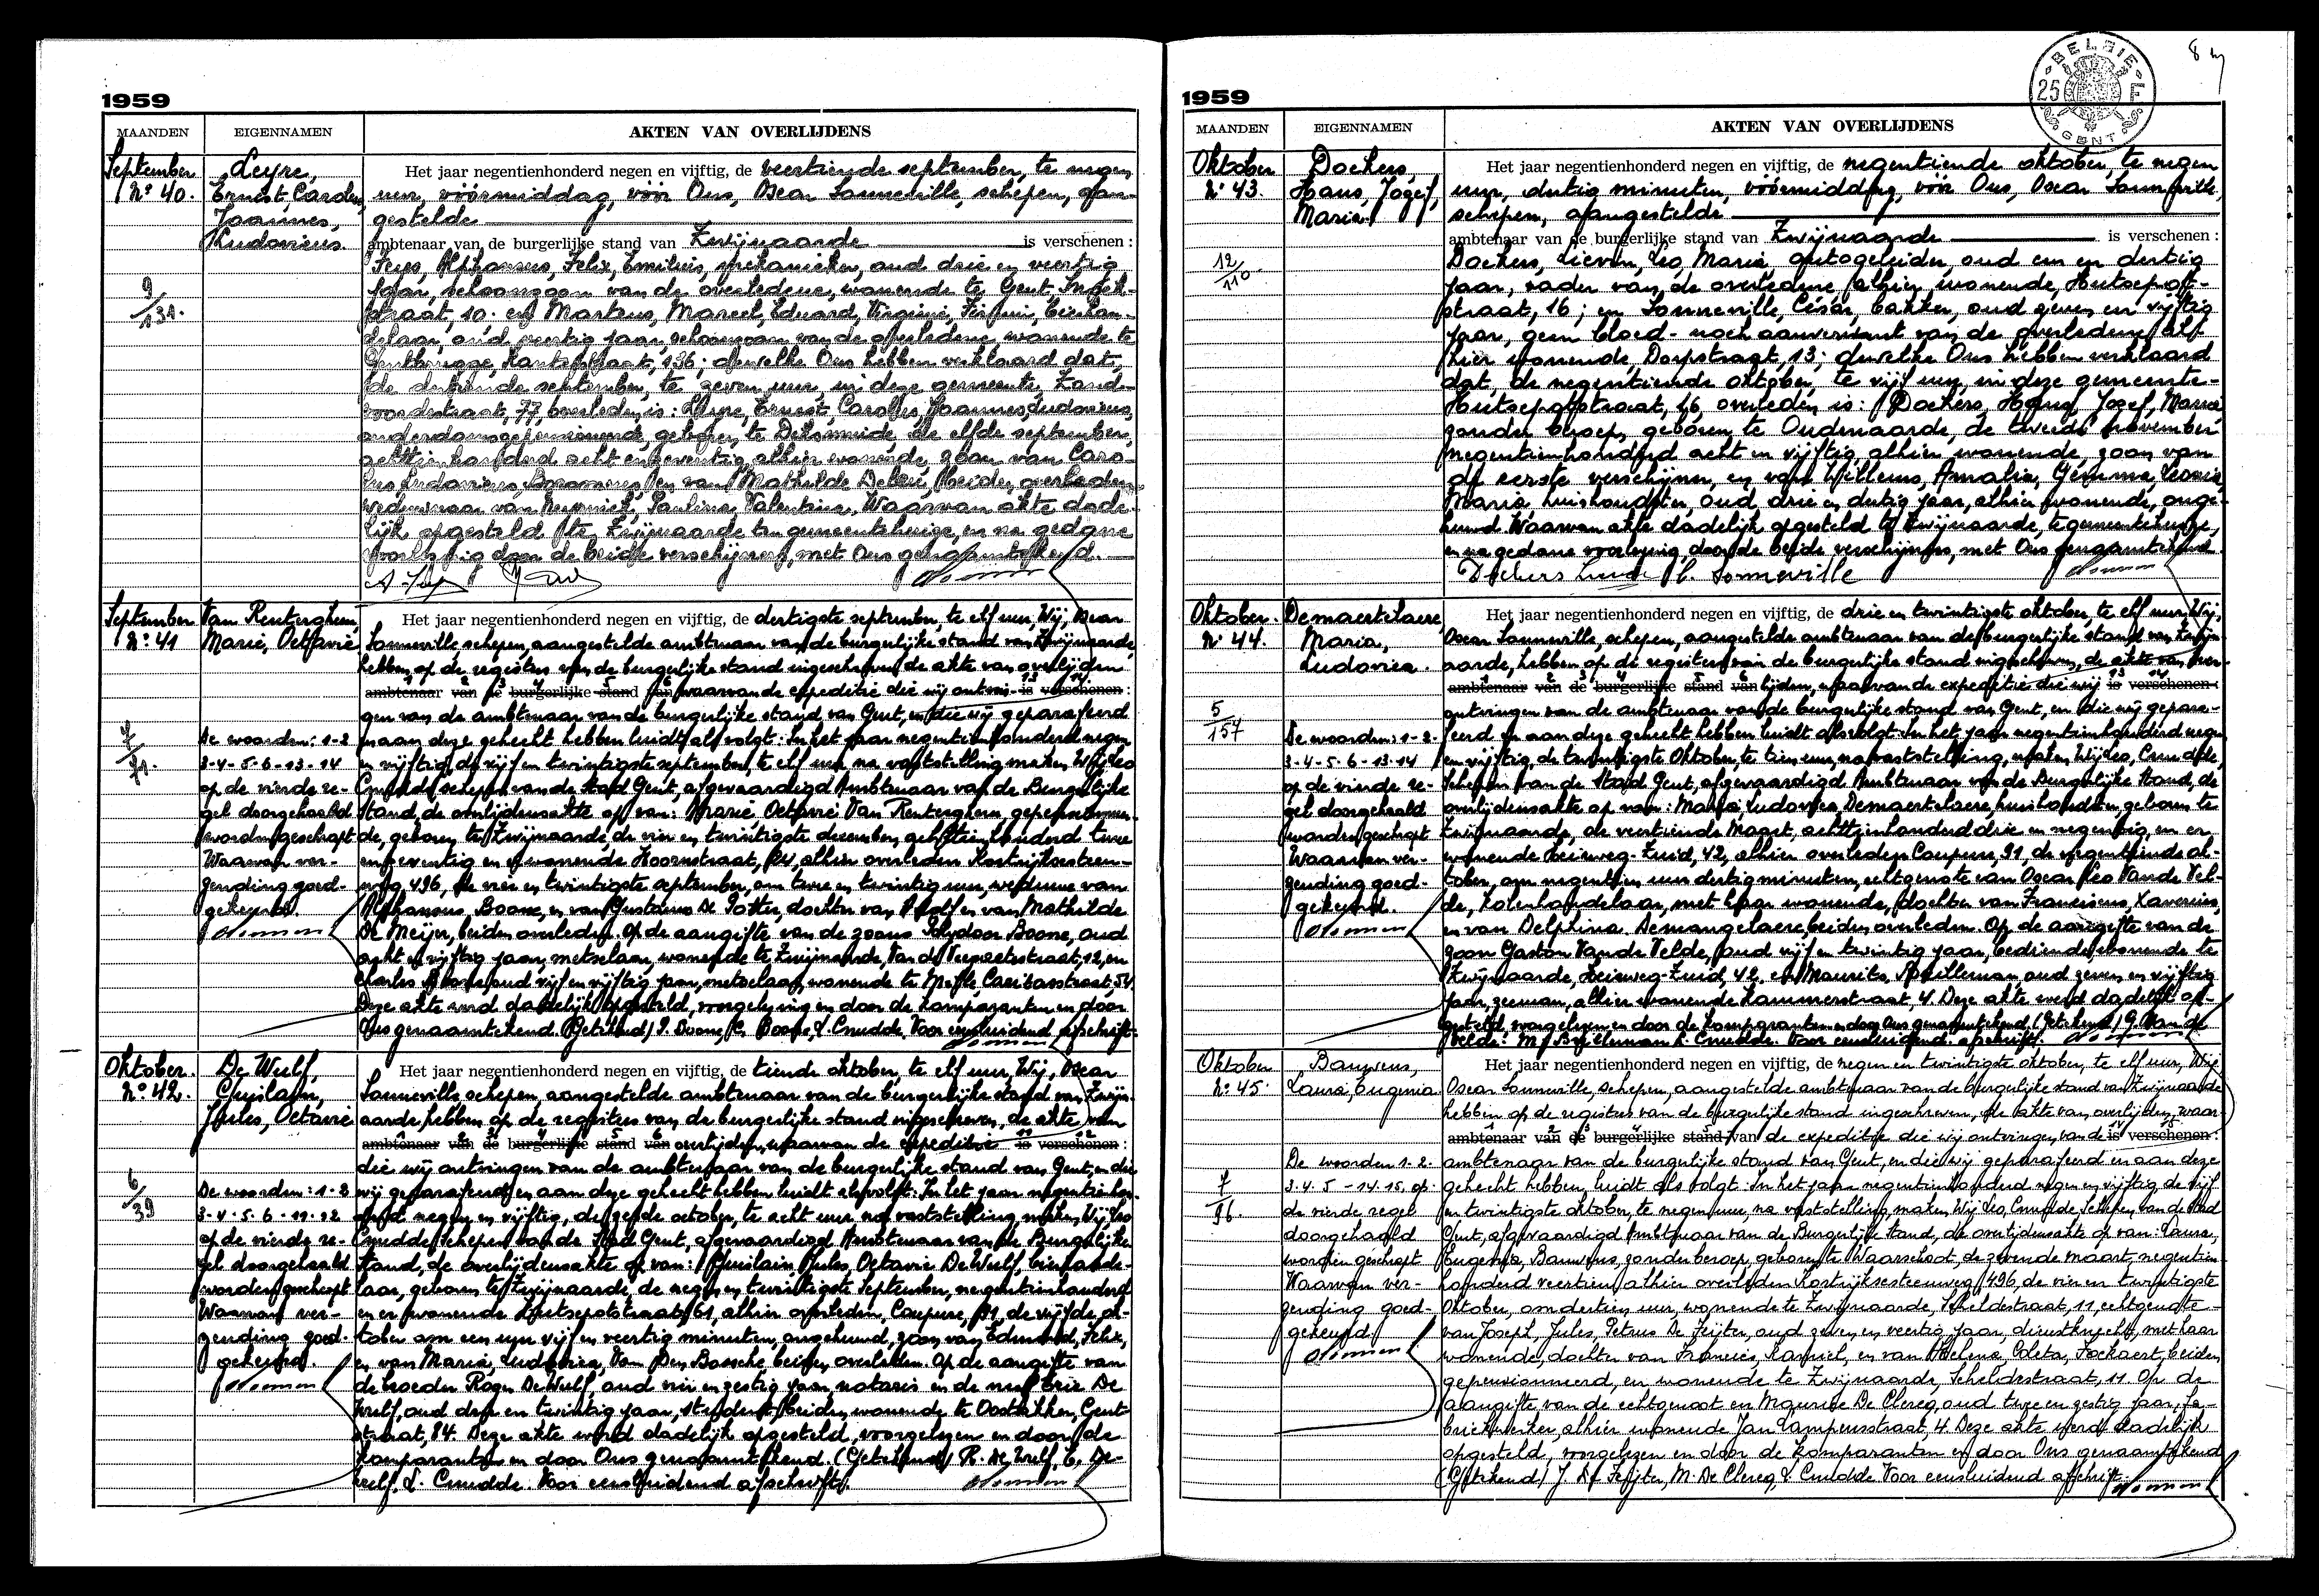 1959
MAANDEN EIGENNAMEN AKTEN VAN OVERLIJDENS
September
No 40.
Leyre,
Ernest, Carolus,
Joannes,
Ludovicus
9/131.
Het jaar negentienhonderd negen en vijftig, de veertiende september, te negen
uur, vóórmiddag, vóór Ons, Oscar Sonneville, schepen, aan-
gestelde
ambtenaar van de burgerlijke stand van Zwijnaarde is verschenen :
Alphonsus, Felix, Emilius, mekanieker, oud drie en veertig
jaar, schoonzoon van de overledene, wonende te Gent,
straat, 10; en Martens, Marcel, Eduard, Virginie, bierhan-
delaar, oud veertig jaar, schoonzoon van de overledene, wonende te
Gentbrugge, 136; dewelke Ons hebben verklaard dat,
de dertiende september, te zeven uur, in deze gemeente, Zand-
voordestraat, 77, overleden is: Leyre, Ernest, Carolus, Joannes, Ludovicus,
ouderdomsgepensioneerde, geboren te Diksmuide, de elfde september,
achttienhonderd acht en zeventig, alhier wonende, zoon van Caro-
lus, Ludovicus, en van Mathilde beiden overleden,
weduwnaar van Paulina, Valentina, Waarvan akte dade-
lijk opgesteld te Zwijnaarde ten gemeentehuize, en na gedane
voorlezing door de beide verschijners, met Ons genaamtekend.
September
No 41
Van Renterghem,
Marie, Octavie
7/71.
De woorden: 1-2
3-4-5-6-13-14
op de vierde re-
gel doorgehaald
worden geschrapt
Waarvan ver-
zending goed-
gekeurd.
Het jaar negentienhonderd negen en vijftig, de dertigste september, te elf uur, Wij, Oscar
Sonneville, schepen, aangestelde ambtenaar van de burgerlijke stand van Zwijnaarde
hebben, op de registers van de burgerlijke stand ingeschreven, de akte van overlijden
ambtenaar van de burgerlijke stand van waarvan de expeditie die wij ontvin- is verschenen :
gen van de ambtenaar van de burgerlijke stand van Gent, en die wij geparafeerd
en aan deze gehecht hebben luidt als volgt: In het jaar negentienhonderd negen
en vijftig, de vijf en twintigste september, te elf uur, na vaststelling, maken, Wij Leo
Cnudde, schepen van de Stad Gent, afgevaardigd Ambtenaar van de Burgerlijke
Stand, de overlijdensakte op van: Marie Octavie Van Renterghem, gepensionneer-
de, geboren te Zwijnaarde, de vier en twintigste december, achttienhonderd twee
en zeventig en er wonende Hoornstraat, 24, alhier overleden Kortrijksesteen-
weg, 496, de vier en twintigste september, om twee en twintig uur, weduwe van
Alphonsus Boone, en van Gustavus De Potter, dochter van en van Mathilde
De Meijer, beiden overleden. Op de aangifte van de zoons Polydoor Boone, oud
acht en vijftig jaar, metselaar, wonende te Zwijnaarde, 12, en
Charles Boone, oud vijf en vijftig jaar, metselaar, wonende te Melle, Caritasstraat, 54.
Deze akte werd dadelijk opgesteld, voorgelezen en door de komparanten en door
Ons genaamtekend. (Getekend) P. Boone, C. Boone, L. Cnudde. Voor eensluidend afschrift.
Oktober.
No 42.
De Wulf,
Ghislain,
Jules, Octavie
6/39
De woorden: 1-2
3-4-5-6-11-12
op de vierde re-
gel doorgehaald
worden geschrapt
Waarvan ver-
zending goed-
gekeurd.
Het jaar negentienhonderd negen en vijftig, de tiende oktober, te elf uur, Wij, Oscar
Sonneville, schepen, aangestelde ambtenaar van de burgerlijke stand van Zwijn-
aarde, hebben op de registers van de burgerlijke stand ingeschreven, de akte van
ambtenaar van de burgerlijke stand van overlijden, waarvan de expeditie is verschenen :
die wij ontvingen van de ambtenaar van de burgerlijke stand van Gent, en die
wij geparafeerd en aan deze gehecht hebben luidt als volgt: In het jaar negentienhon-
derd negen en vijftig, de zesde october, te acht uur, na vaststelling, maken, Wij Leo
Cnudde, Schepen van de Stad Gent, afgevaardigd Ambtenaar van de Burgerlijke
Stand, de overlijdensakte op van: Ghislain Jules, Octavie De Wulf, bierhande-
laar, geboren te Zwijnaarde, de negen en twintigste September, negentienhonderd
en er wonende Hutsepotstraat, 61, alhier overleden, Coupure, 91, de vijfde ok-
tober om een uur vijf en veertig minuten, ongehuwd, zoon van Edmond, Felix,
en van Maria, Ludovica, Van Den Bossche, beiden overleden. Op de aangifte van
de broeder Roger De Wulf, oud vier en zestig jaar, notaris en de neef Eric De
Wulf, oud drie en twintig jaar, student, beiden wonende te Oostakker, Gent-
straat, 84. Deze akte werd dadelijk opgesteld, voorgelezen en door de
komparanten en door Ons genaamtekend. (Getekend) R. De Wulf, E. De-
wulf, L. Cnudde. Voor eensluidend afschrift.
1959
BELGIE 25 F GENT
MAANDEN EIGENNAMEN AKTEN VAN OVERLIJDENS
Oktober
No 43.
Dockers,
Hans, Jozef,
Maria.
12/110.
Het jaar negentienhonderd negen en vijftig, de negentiende oktober, te negen
uur, dertig minuten, vóórmiddag, vóór Ons, Oscar Sonneville,
schepen, aangestelde
ambtenaar van de burgerlijke stand van Zwijnaarde is verschenen :
Dockers, Lieven, Leo, Maria, autogeleider, oud een en dertig
jaar, vader van de overledene, alhier wonende, Hutsepot-
straat, 16; en Sonneville, César, bakker, oud zeven en vijftig
jaar, geen bloed- noch aanverwant van de overledene, al-
hier wonende, Dorpstraat, 13; dewelke Ons hebben verklaard
dat, de negentiende oktober, te vijf uur, in deze gemeente-
Hutsepotstraat, 16, overleden is: Dockers, Hans, Jozef, Maria,
zonder beroep, geboren te Oudenaarde, de tweede november
negentienhonderd acht en vijftig, alhier wonende, zoon van
de eerste verschijner, en van Willems, Amalia, Gemma, Leonia,
Maria, huishoudster, oud drie en dertig jaar, alhier wonende, onge-
huwd. Waarvan akte dadelijk opgesteld te Zwijnaarde, te gemeentehuize,
en na gedane voorlezing door de beide verschijners, met Ons genaamtekend.
Dockers Lieven C. Sonneville
Oktober.
No 44.
Demaertelaere
Maria,
Ludovica.
5/157
De woorden: 1-2.
3-4-5-6-13-14
op de vierde re-
gel doorgehaald
worden geschrapt
Waarvan ver-
zending goed-
gekeurd.
Het jaar negentienhonderd negen en vijftig, de drie en twintigste oktober, te elf uur, Wij,
Oscar Sonneville, schepen, aangestelde ambtenaar van de burgerlijke stand van Zwijn-
aarde, hebben op de registers van de burgerlijke stand ingeschreven, de akte van over-
ambtenaar van de burgerlijke stand van lijden, waarvan de expeditie die wij is verschenen :
ontvingen van de ambtenaar van de burgerlijke stand van Gent, en die wij gepara-
feerd en aan deze gehecht hebben luidt als volgt: In het jaar negentienhonderd negen
en vijftig, de twintigste Oktober, te tien uur, na vaststelling, maken, Wij Leo, Cnudde,
Schepen van de Stad Gent, afgevaardigd Ambtenaar van de Burgerlijke Stand, de
overlijdensakte op van: Maria, Ludovica, Demaertelaere, huishoudster, geboren te
Zwijnaarde, de veertiende Maart, achttienhonderd drie en negentig, en er
wonende Leieweg-Zuid, 42, alhier overleden Coupure, 91, de negentiende ok-
tober, om negentien uur dertig minuten, echtgenote van Oscar Leo Van de Vel-
de, kolenhandelaar, met haar wonende, dochter van Franciscus, Xaverius,
en van Delphina Demangelaere beiden overleden. Op de aangifte van de
zoon Gaston Van de Velde, oud vijf en twintig jaar, bediende, wonende te
Zwijnaarde, Leieweg-Zuid, 42, en Maurits, oud zeven en vijftig
jaar, zeeman, alhier wonende Kammerstraat, 4. Deze akte werd dadelijk op-
gesteld, voorgelezen en door de komparanten en door Ons genaamtekend. (Getekend) G. Van de
Velde. M. L. Cnudde. Voor eensluidend afschrift.
Oktober
No 45.
Bauwens,
Laura, Eugenia
7/96.
De woorden 1-2.
3.4.5-14.15. op
de vierde regel
doorgehaald
worden geschrapt
Waarvan ver-
zending goed-
gekeurd
Het jaar negentienhonderd negen en vijftig, de negen en twintigste oktober, te elf uur, Wij
Oscar Sonneville, schepen, aangestelde ambtenaar van de burgerlijke stand van Zwijnaarde
hebben op de registers van de burgerlijke stand ingeschreven, de akte van overlijden, waar-
ambtenaar van de burgerlijke stand van de expeditie die wij ontvingen van de is verschenen :
ambtenaar van de burgerlijke stand van Gent, en die wij geparafeerd en aan deze
gehecht hebben, luidt als volgt: In het jaar negentienhonderd negen en vijftig, de vijf
en twintigste oktober, te negen uur, na vaststelling, maken, Wij Leo, Cnudde Schepen van de Stad
Gent, afgevaardigd Ambtenaar van de Burgerlijke Stand, de overlijdensakte op van: Laura,
Eugenia, Bauwens, zonder beroep, geboren te Waarschoot, de zevende maart, negentien-
honderd veertien, alhier overleden Kortrijksesteenweg, 496, de vier en twintigste
Oktober, om dertien uur, wonende te Zwijnaarde, Scheldestraat, 11, echtgenote
van Joseph, Jules, Petrus De Feijter, oud zeven en veertig jaar, dienstknecht, met haar
wonende, dochter van Francies, Kamiel, en van Helena, Coleta, Fockaert, beiden
gepensionneerd, en wonende te Zwijnaarde, Scheldestraat, 11. Op de
aangifte van de echtgenoot en Maurice De Clercq, oud twee en zestig jaar, fa-
briekwerker alhier wonende Jan Samijnstraat, 4. Deze akte werd dadelijk
opgesteld, voorgelezen en door de komparanten en door Ons genaamtekend
(Getekend) J. De Feijter, M. De Clercq, L. Cnudde. Voor eensluidend afschrift.